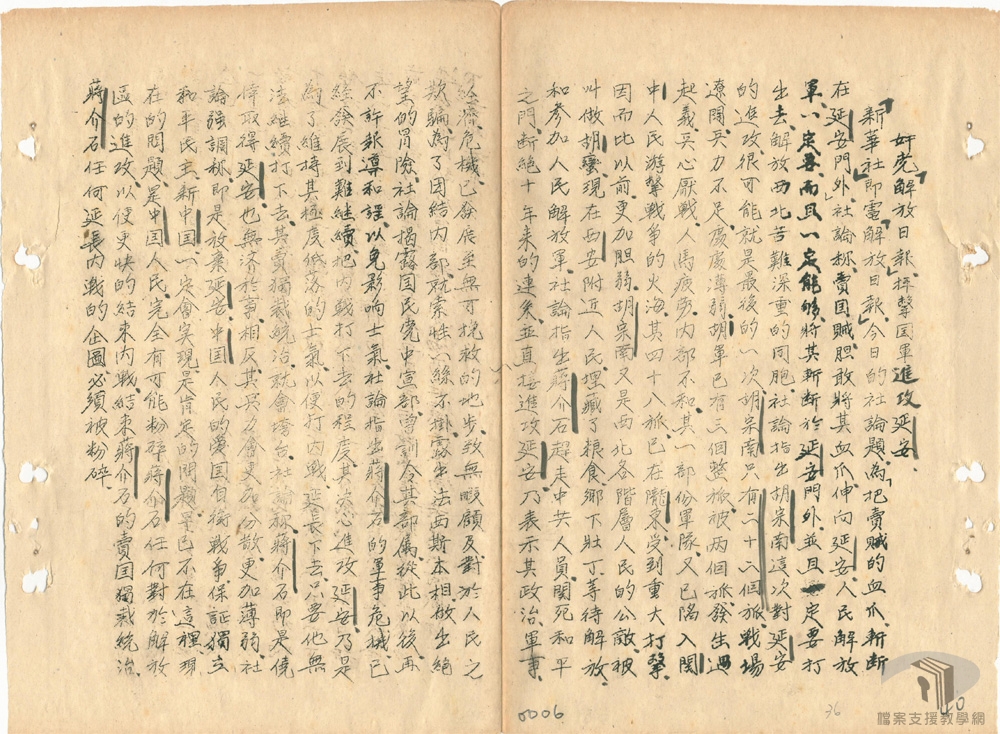 奸党「解放日報」抨擊国軍進攻延安
「新華社」即電「解放日報」今日的社論題為「把賣賊的血爪、斬断
在延安門外」社論称、賣国賊胆敢將其血爪伸向延安、人民解放
軍、一定要而且一定能够將其斬断於延安門外、並且一定要打
出去、解放西北苦難深重的同胞、社論指出胡宗南這次対延安
的進攻很可能就是最後的一次、胡宗南只有二十六個旅、戰場
遼闊、兵力不足、處處薄弱、胡軍已有三個整旅、被两個旅發生過
起義、兵心厭戰、人馬疲勞、內部不和、其一部份軍隊又已陷入関
中人民游擊戰爭的火海、其四十八旅、已在隴東受到重大打擊、
因而比以前、更加胆弱、胡宗南又是西北各階層人民的公敵、被
叫做胡蠻、現在西安附近人民、埋藏了粮食、鄉下壮丁等待解放、
和參加人民解放軍、社論指出蔣介石趕走中共人員、関死和平
之門、断絕十年来的連系、並直接進攻延安、乃表示其政治、軍事、
經濟危機、已發展至無可挽救的地步、致無暇顧及對於人民之
欺騙、為了团結内部、就索性一絲不掛、露出法西斯本相、做出絕
望的冒險、社論揭露国民党中宣部、曾訓令其部屬、從此以後、再
不許報導和謠、以免影响士氣、社論指出蔣介石的軍事危機已
經發展到難継續把內戰打下去的程度、其決心進攻延安、乃是
為了維持其極度低落的士氣、以便打内戰、延長下去、只要他無
法継續打下去、其賣独裁統治就會垮台、社論称、蔣介石即是僥
倖取得延安、也無济於事、相反其兵力會更加份散、更加薄弱、社
論强調称、即是放棄延安、中国人民的愛国自衛戰争、保証独立
和平民主新中国、一定會实現、是肯定的問題、早已不在這裡、現
在的問題是中国人民、完全有可能粉碎蔣介石任何對於解放
區的進攻、以便更快的結束内戰、結束蔣介石的賣国独裁統治、
蔣介石任何延長内戰的企圖必須被粉碎
0006
36
10
檔案支援教學網